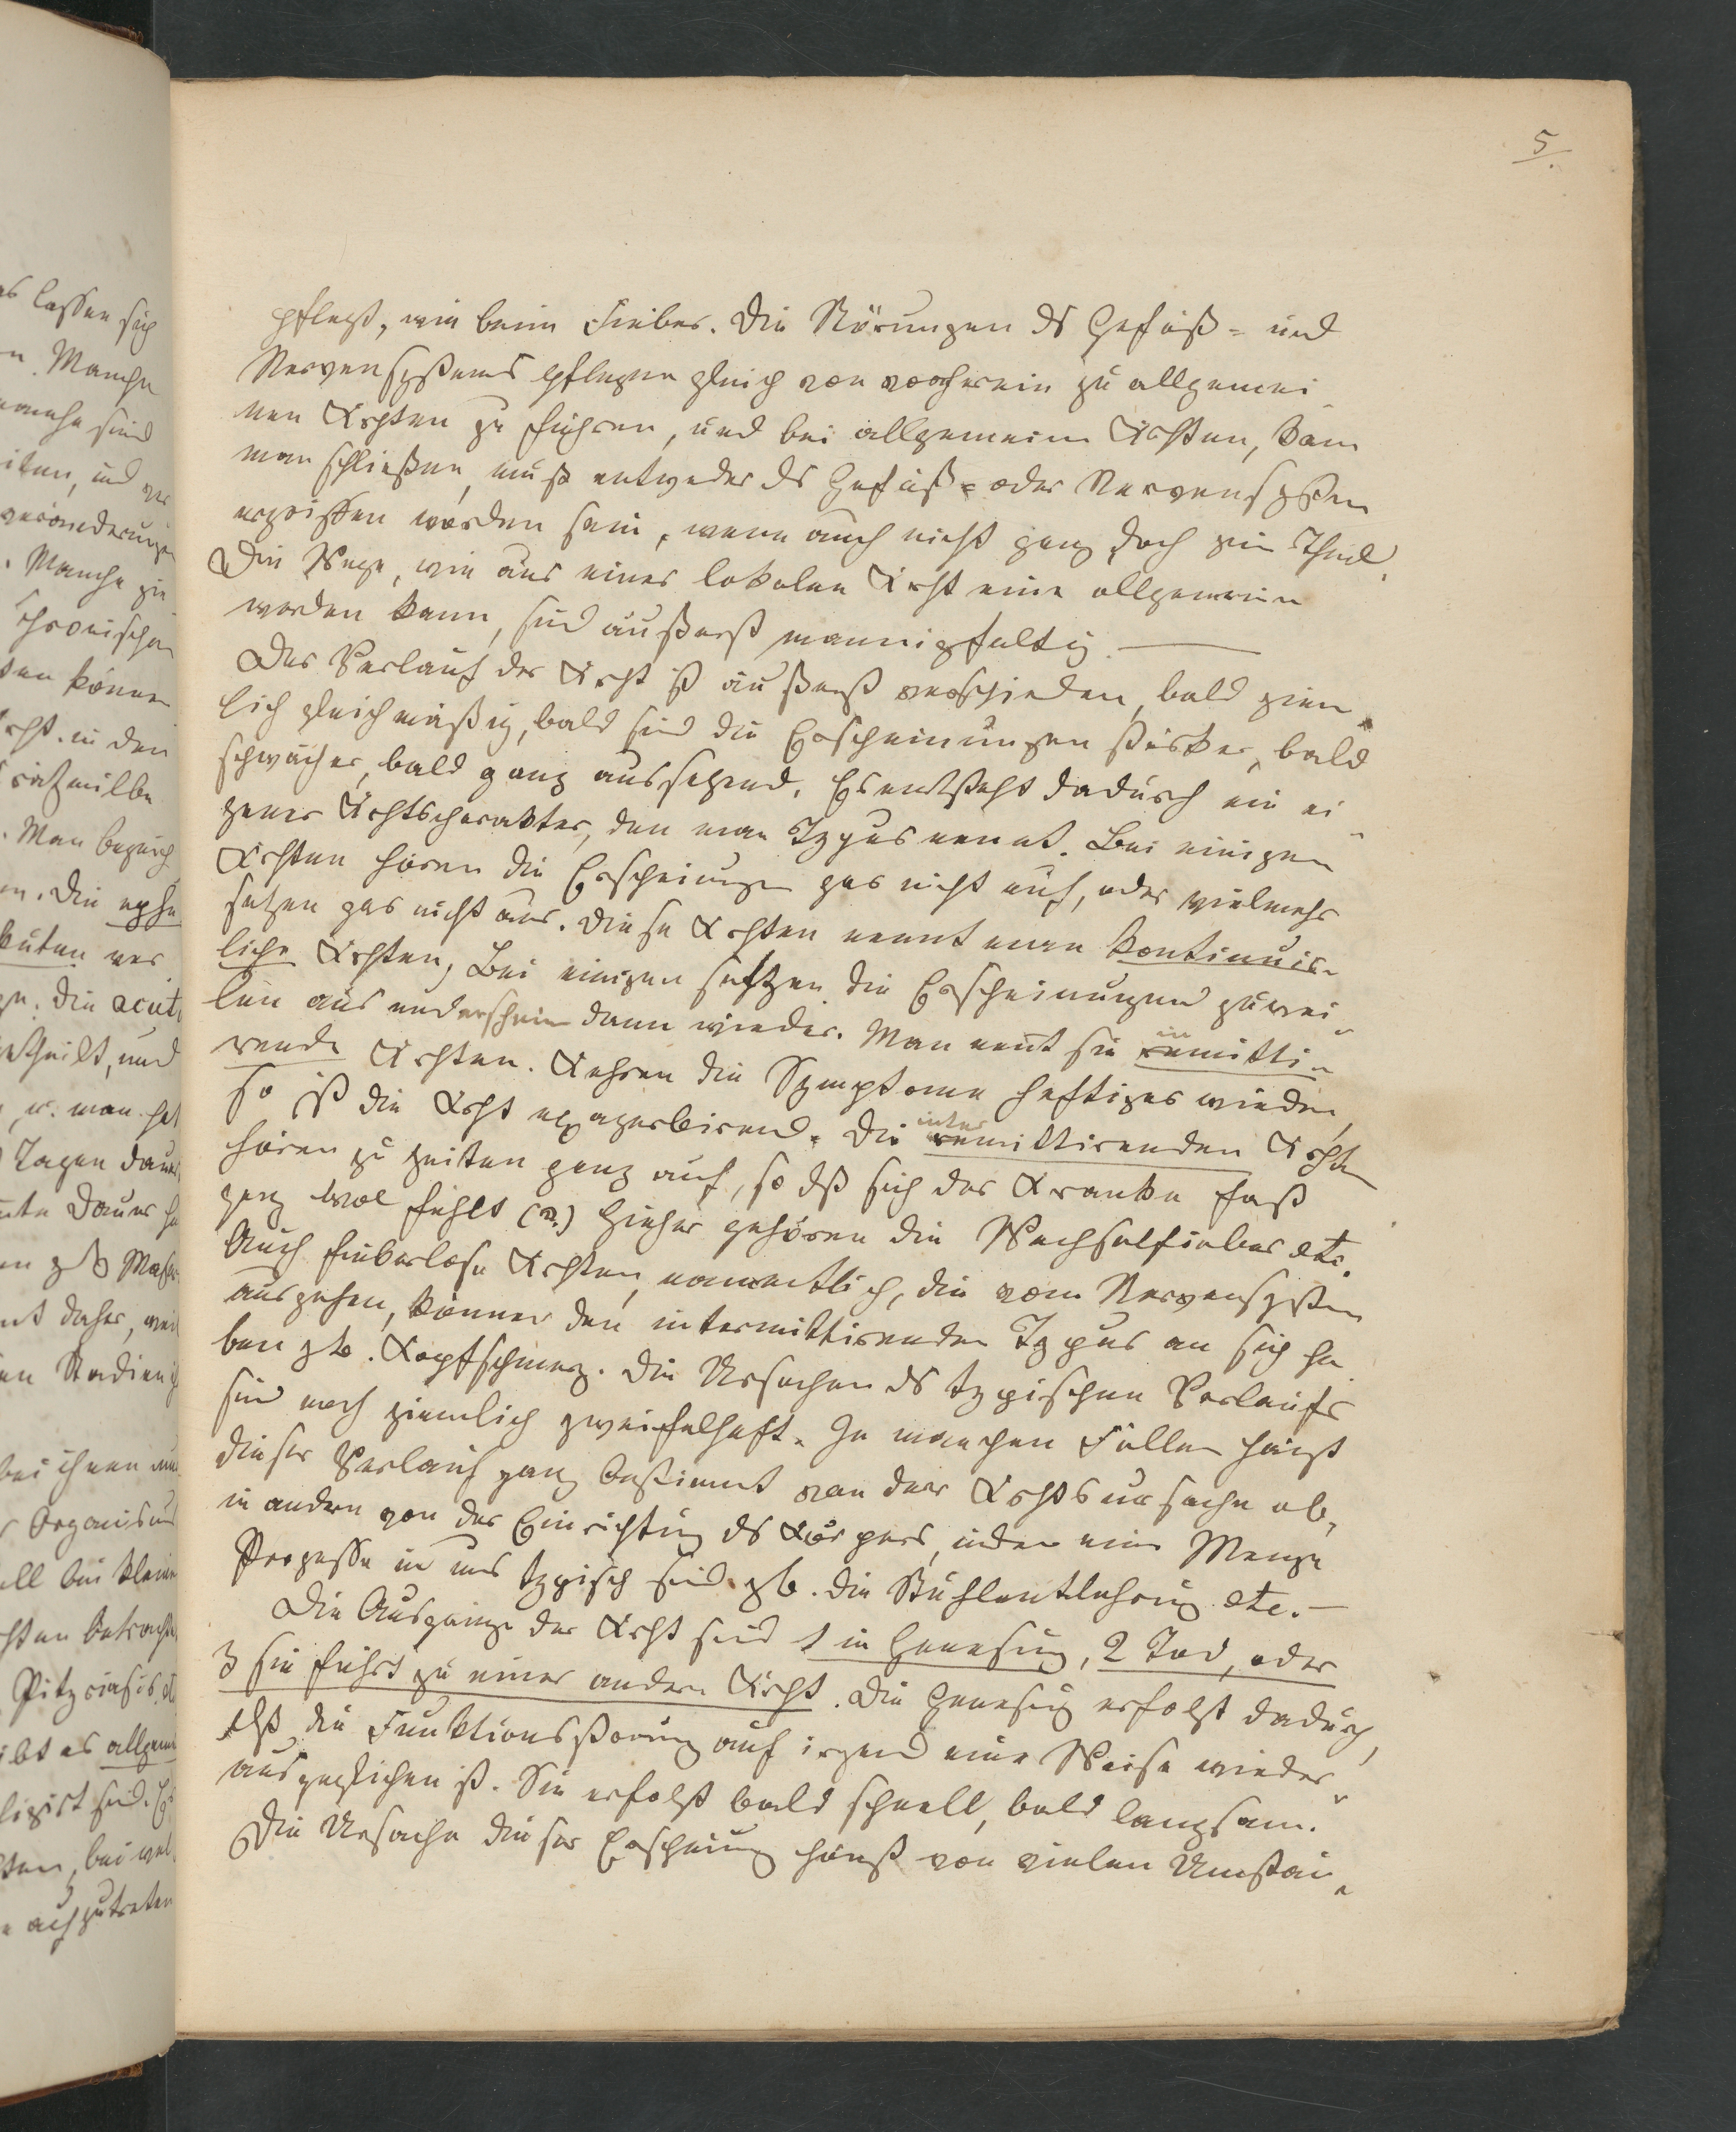 5.
pflegt, wie beim Fieber. Die Störungen ds Gefäß- und
Nervensystems pflegen gleich von vornherein zu allgemei-
nen Krhten zu führen, und bei allgemeinen Krhten, kann
man schließen, muß entweder ds Gefäß- oder Nervensystem
ergriffen worden sein, wenn auch nicht ganz doch zum Theil.
Die Wege, wie aus einer lokalen Krht eine allgemeine
werden kann, sind äußerst mannigfaltig. —
Der Verlauf der Krht ist äußerst verschieden, bald ziem-
lich gleichmäßig, bald sind die Erscheinungen stärker, bald
schwächer, bald ganz aussetzend. Es entsteht dadurch ein ei-
gener Krhtscharakter, den man Typus nennt. Bei einigen
Krhten hören die Erscheinungen gar nicht auf, oder vielmehr
setzen gar nicht aus. Diese Krhten nennt man kontinuir-
liche Krhten, Bei einigen setzen die Erscheinungen zuwei-
len aus und erscheinen dann wieder. Man nent sie remitti-
rende Krhten. Kehren die Symptome heftiger wieder,
so ist die Krht exazerbirend. Die inter remittirenden Krhten
hören zu Zeiten ganz auf, so dß sich der Kranke fast
ganz wol fühlt (?.) Hieher gehören die Wechselfieber etc.
Auch fieberlose Krhten, namentlich, die vom Nervensystem
ausgehen, können den intermittirenden Typus an sich ha-
ben zb. Kopfschmerz. Die Ursachen ds typischen Verlaufs
sind noch ziemlich zweifelhaft. In manchen Fällen hängt
dieser Verlauf ganz bestimmt von der Krhtsursache ab,
in andern von der Einrichtung ds Körpers, indem eine Menge
Prozesse in uns typisch sind zb. die Stuhlentlehrung etc. —
Die Ausgänge der Krht sind 1 in Genesung, 2 Tod, oder
3 sie führt zu einer andern Krht. Die Genesung erfolgt dadurch,
dß die Funktionsstörung auf irgend eine Weise wieder
ausgeglichen ist. Sie erfolgt bald schnell, bald langsam.
Die Ursache dieser Erscheinung hängt von vielen Umstän-